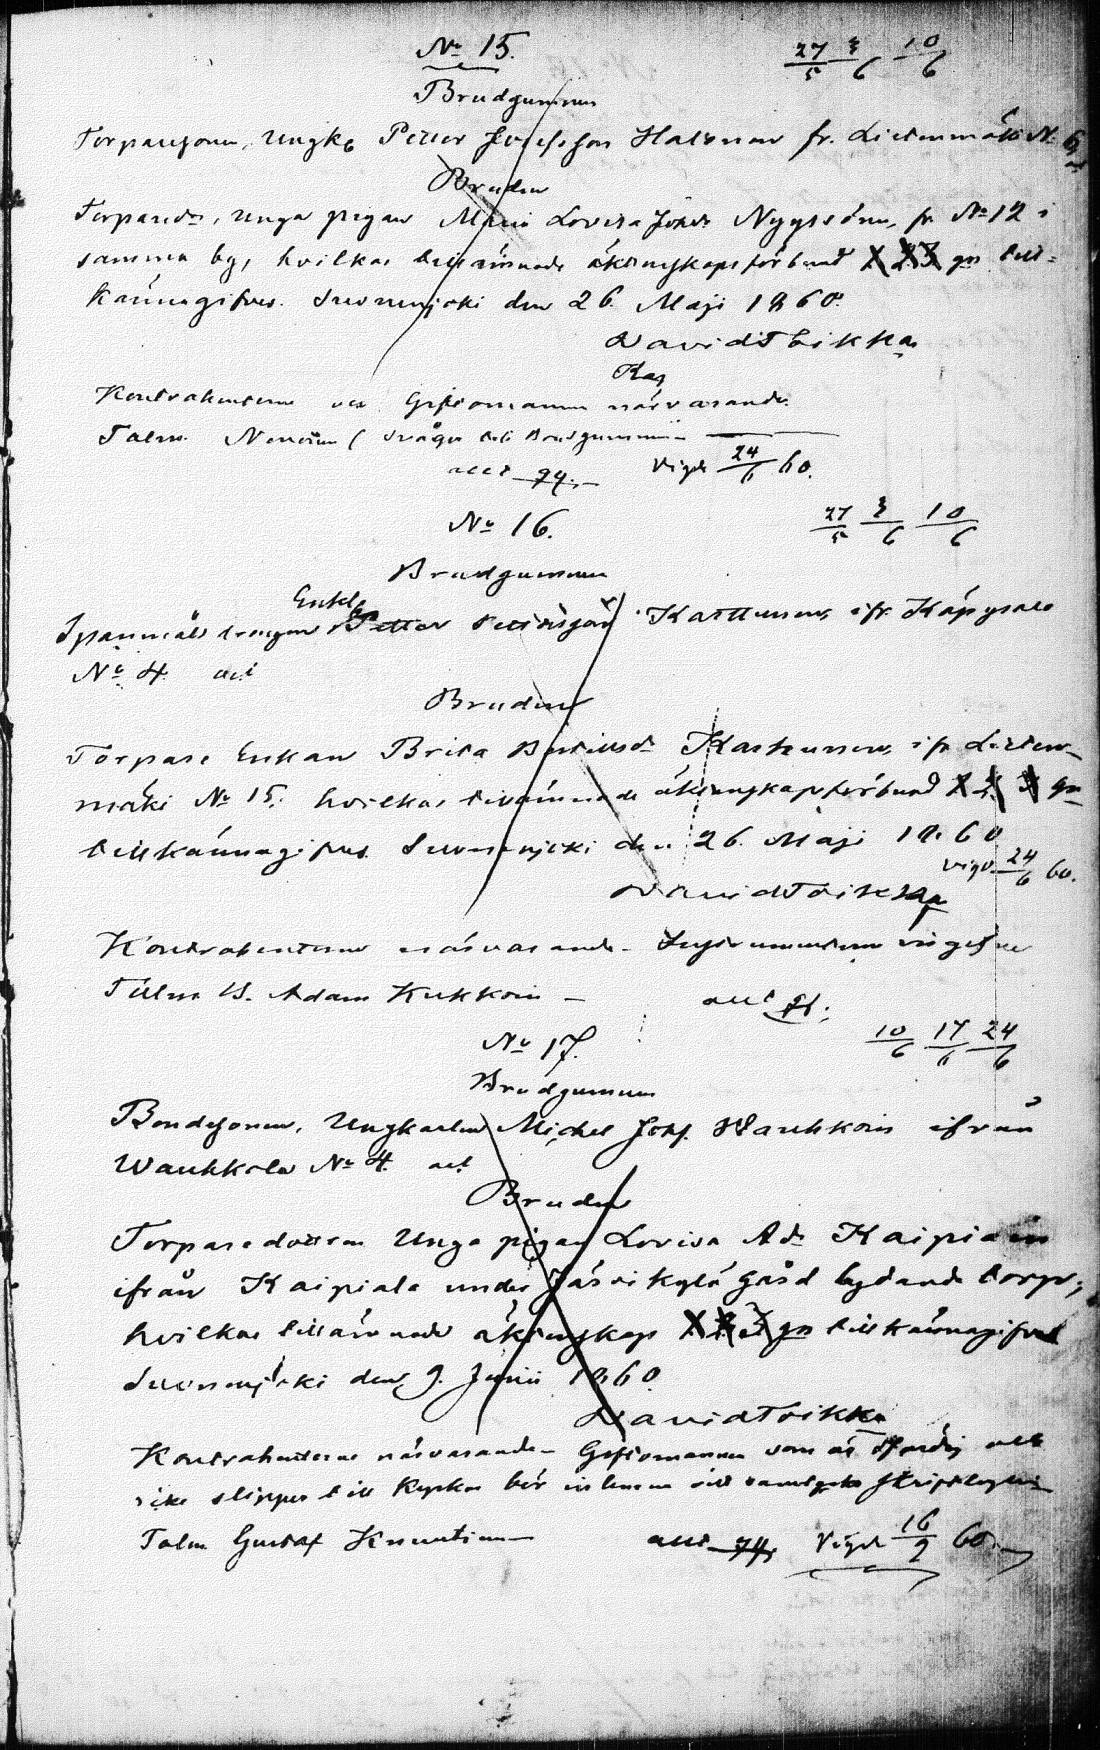 No 15.
27/5 3/6 10/6
Brudgummen
Torparesonen, Ungk. Petter Josefsson Halonen fr. Lietenmäki No 6,
Bruden
Torparedr, unga pigan Maria Lovisa Johdr Nyyssönen, fr. No 12 i
samma by, hvilkas tillämnade äktenskapsförbund 1 2 3 gn till-
kännagifves. Suonenjoki den 26. Maji 1860.
David Toikka
Kontrahenterne och Giftomannen närvarande.
Talm. Nenonen (svåger till Brudgummen
Vigde 24/6 60.
No 16.
27/5 3/6 10/6
Brudgummen
Enkl.
Petter Pettersson Karttunen, ifr. Käpysalo
No 4. act
Bruden
Torpare Enkan Brita Karhunen, ifr. Lieten-
mäki No 15. hvilkas tillämnade äktenskapsförbund 1 2 3 gn
tillkännagifves. Suonenjoki den 26. Maji 1860
vigd. 24/6 60.
David Toikka
Kontrahenterne närvarande.
Talm. Adam Kukkoin
No 17.
10/6 17/6 24/6
Brudgummen
Bondesonen, Ungkarlen Michel Johs. Wauhkoin ifrån
Wauhkola No 4. act
Bruden
Torparedottren Unga pigan Lovisa Adr Kaipiain
ifrån Kaipiala under Järvikylä gård lydande torp,
hvilkas tillämnade äktenskap 1 2 3 gn tillkännagifves
Suonenjoki den 9. Junii 1860.
David Toikka
Kontrahenterne närvarande. Giftomannen som är
icke slipper till Kyrkan bör
Talm. Gustaf Knuutinen
Vigde 16/9 60.